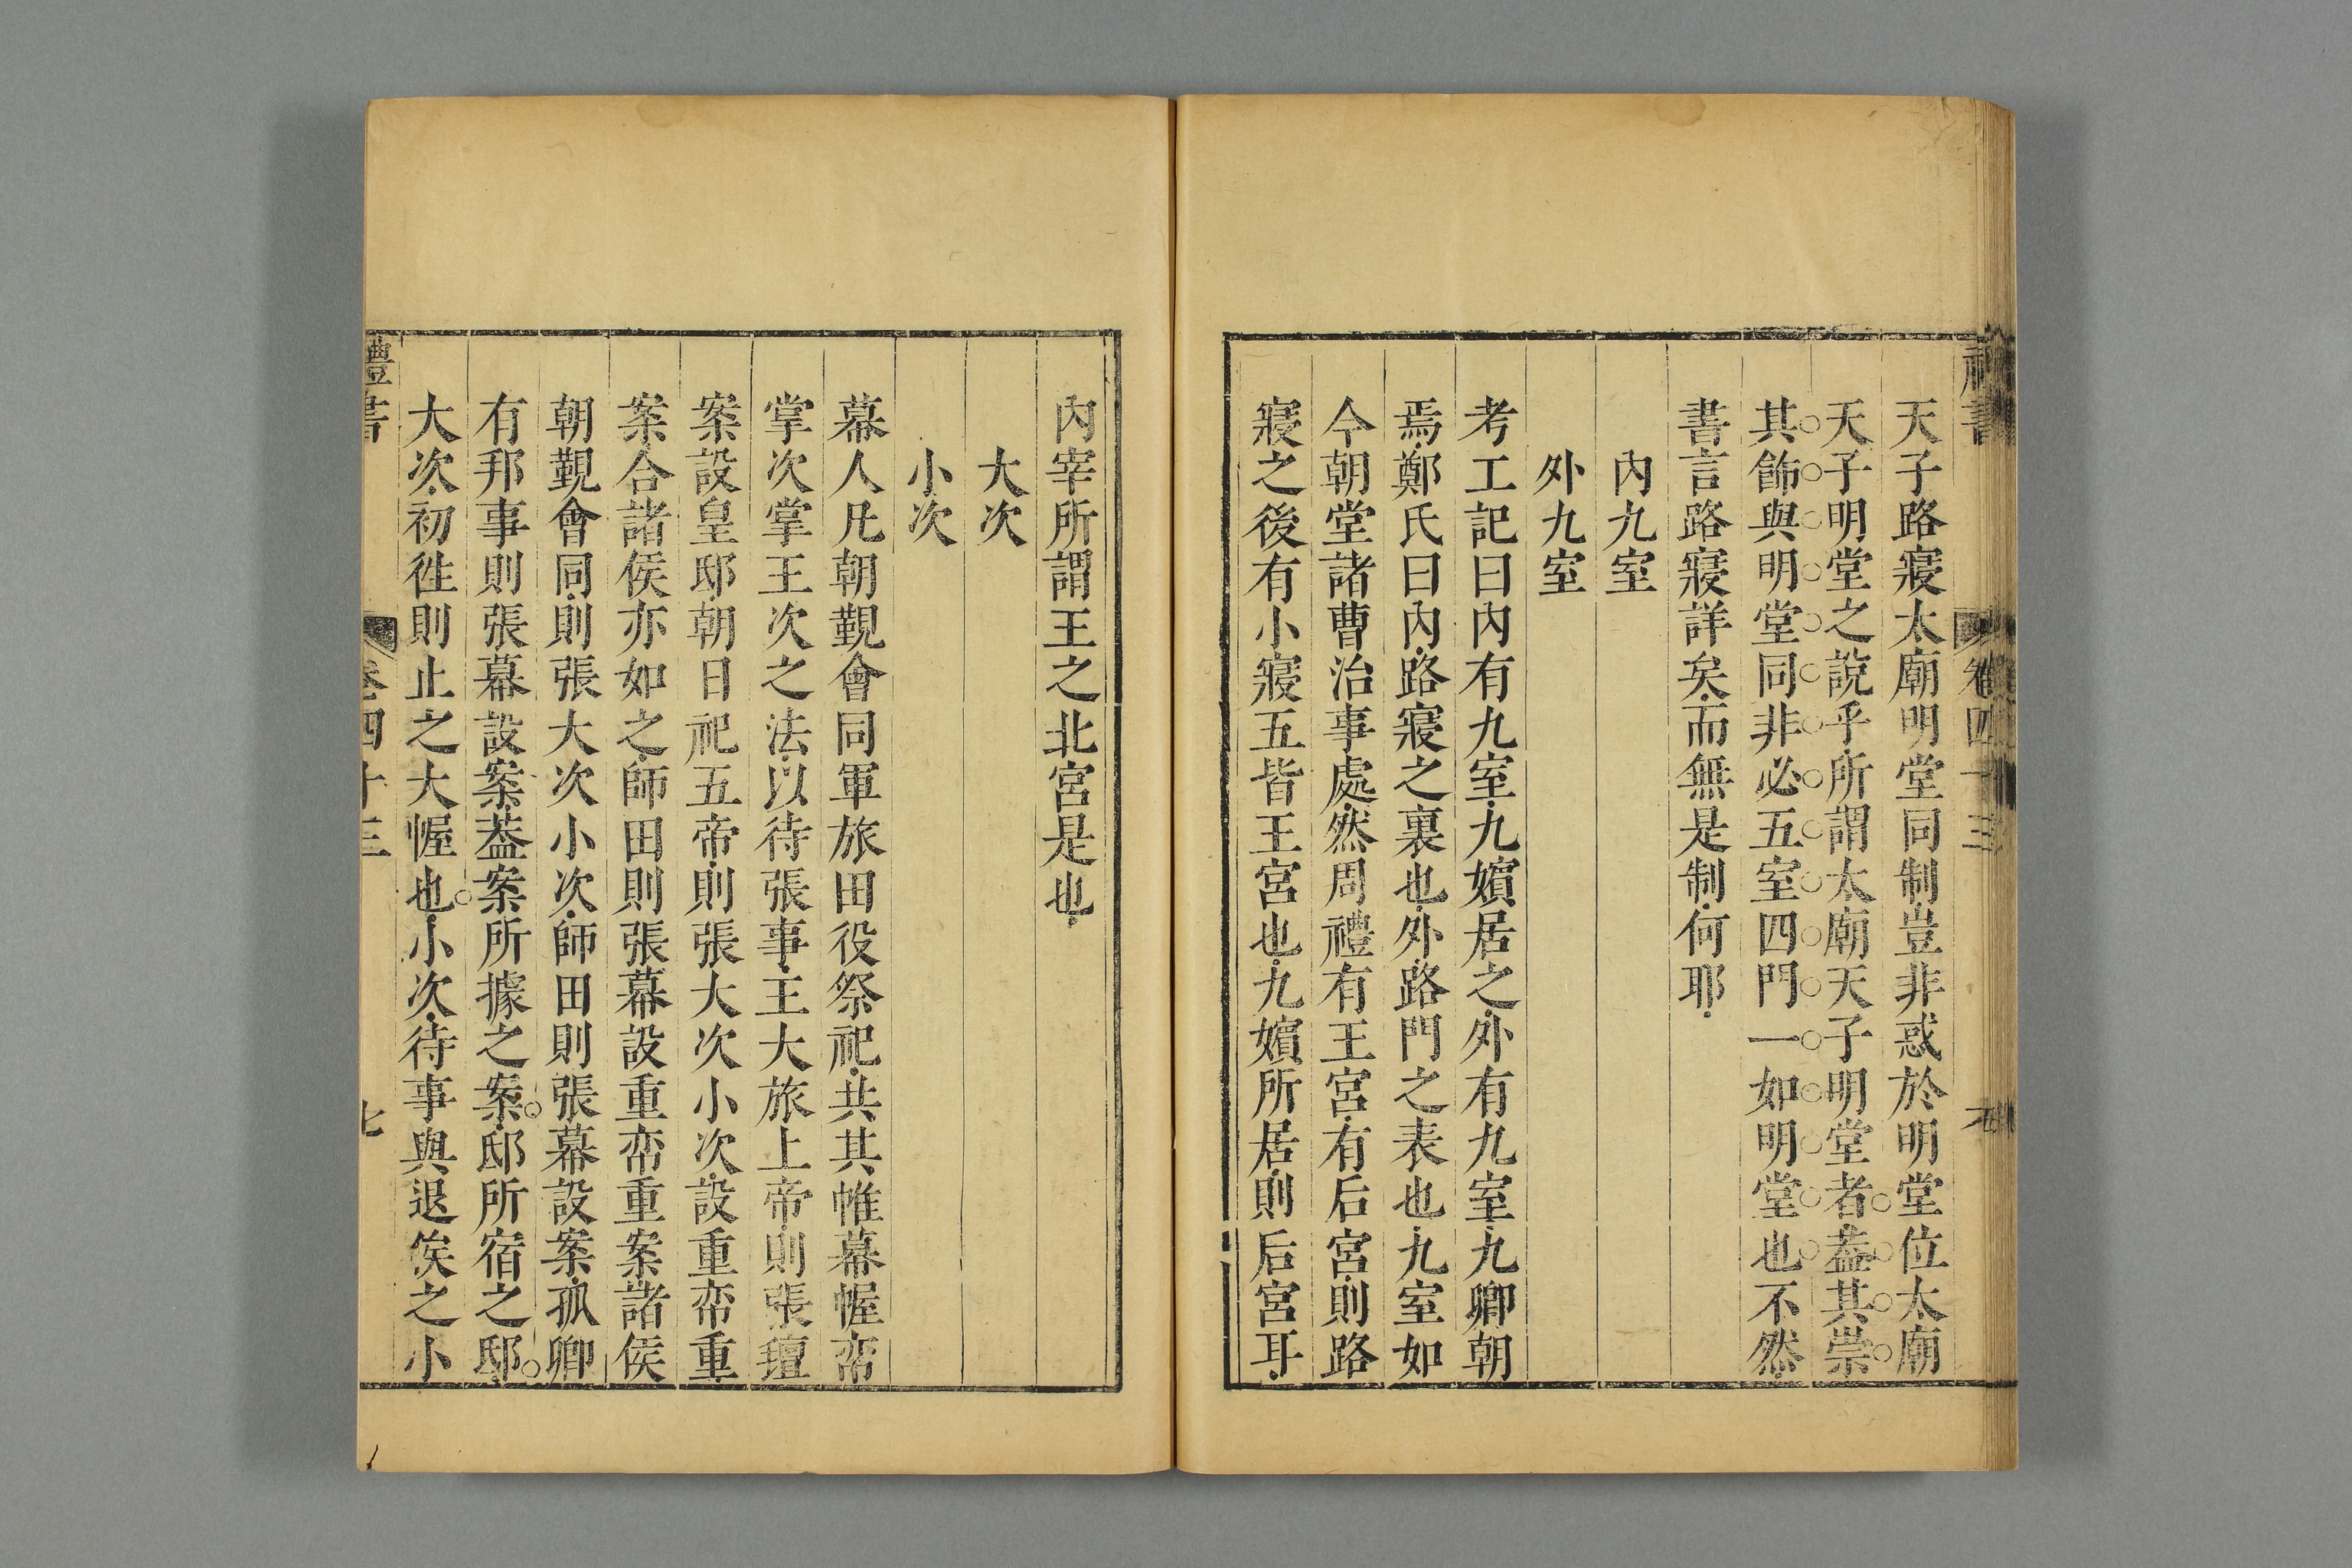 天子路寢太廟明堂同制豈非惑於明堂位太廟
天子明堂之說乎所謂太廟天子明堂者葢其崇
其飾與明堂同非必五室四門一如明堂也不然
書言路寢詳矣而無是制何耶
內九室
外九室
考工記曰內有九室九嬪居之外有九室九卿朝
焉鄭氏曰內路寢之裏也外路門之表也九室如
今朝堂諸曹治事處然周禮有王宮有后宮則路
寢之後有小寢五皆王宮也九嬪所居則后宮耳
內宰所謂王之北宮是也
大次
小次
幕人凡朝覲會同軍旅田役祭祀共其帷幕幄帟
掌次掌王次之法以待張事王大旅上帝則張氊
案設皇邸朝日祀五帝則張大次小次設重帟重
案合諸侯亦如之師田則張幕設重帟重案諸侯
朝覲會同則張大次小次師田則張幕設案孤卿
有邦事則張幕設案葢案所據之案邸所宿之邸
大次初徃則止之大幄也小次待事與退俟之小
禮書
卷四十三
七